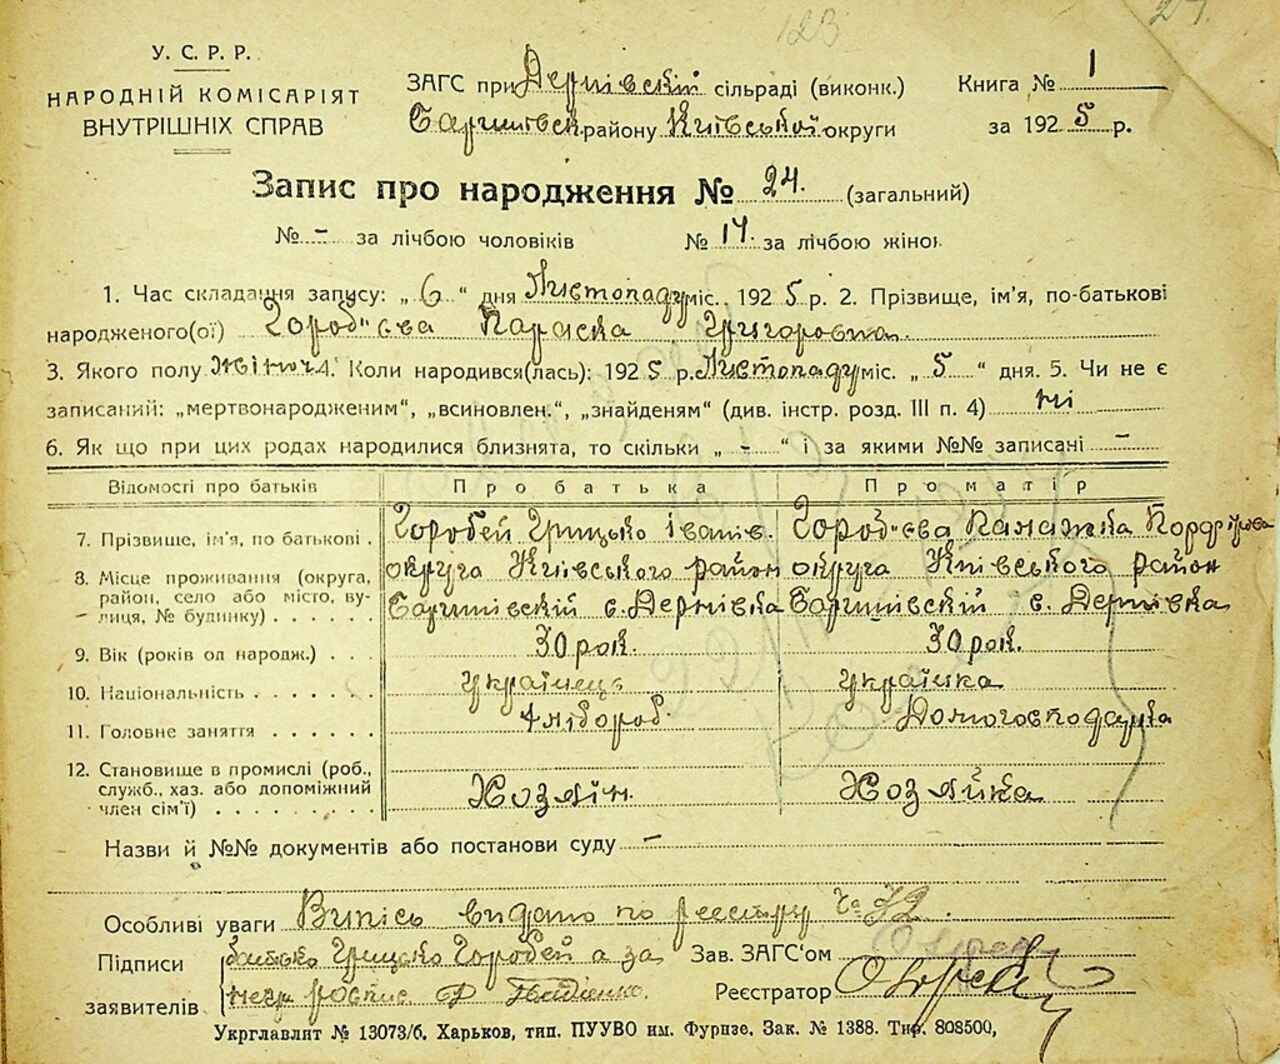 123
24.
У. С. Р. Р.
НАРОДНІЙ КОМІСАРІЯТ
ВНУТРІШНІХ СПРАВ
ЗАГС при Дернівскій сільраді (виконк.)
Баришівськ. району Київської округи
Книга № 1
за 1925 р.
Запис про народження № 24. (загальний)
№ - за лічбою чоловіків № 14. за лічбою жінок
1. Час складання запису: „ 6 “ дня Листопаду міс. 1925 р. 2. Прізвище, ім’я, по-батькові
народженого(ої) Гороб"єва Параска Григоровна.
3. Якого полу жіноч. 4. Коли народився(лась): 1925 р. Листопаду міс. „ 5 “ дня. 5. Чи не є
записаний: „мертвонародженим“, „всиновлен.“, „знайденям“ (див. інстр. розд. III п. 4) ні
6. Як що при цих родах народилися близнята, то скільки „ - “ і за якими №№ записані -
Відомості про батьків Про батька Про матір
7. Прізвище, ім’я, по батькові . Горобей Грицько Іванів. Гороб"єва Панажка
8. Місце проживання (округа, округа Київського район округа Київського район
район, село або місто, ву-
лиця, № будинку) . . . . . . Баришівскій с. Дернівка Баришівскій с. Дернівка
9. Вік (років од народж.) . . . 30 рок. 30 рок.
10. Національність . . . . . . . Українець Українка
11. Головне заняття . . . . . . Хлібороб. Домогосподарка
12. Становище в промислі (роб.,
служб., хаз. або допоміжний Хозяін. Хозяйка
член сім’ї) . . . . . . . . .
Назви й №№ документів або постанови суду -
Особливі уваги Випісь видано по реєстру № 72.
Підписи батько Грицько Горобей а за Зав. ЗАГС’ом
заявителів негр роспис

Реєстратор
Укрглавлит № 13073/б. Харьков, тип. ПУУВО им. Фурнзе. Зак. № 1388. Тир. 808500,